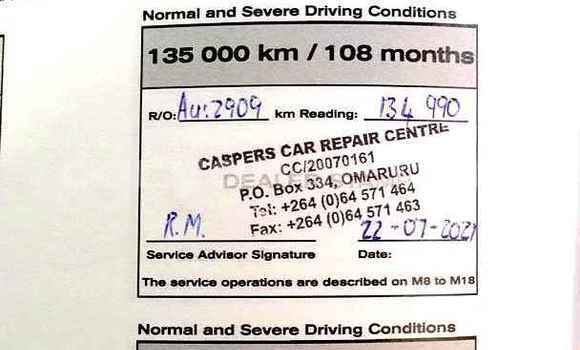 Normal and Severe Driving Conditions
135 000 km / 108 months
R/O: Au:2909 km Reading: 134 990
CASPERS CAR REPAIR CENTRE
CC/20070161
DEALER
P.O. Box 334, OMARURU
Tel: +264 (0)64 571 464
Fax: +264 (0)64 571 463
R.M. 22-07-2021
Service Advisor Signature Date:
The service operations are described on M8 to M18
Normal and Severe Driving Conditions